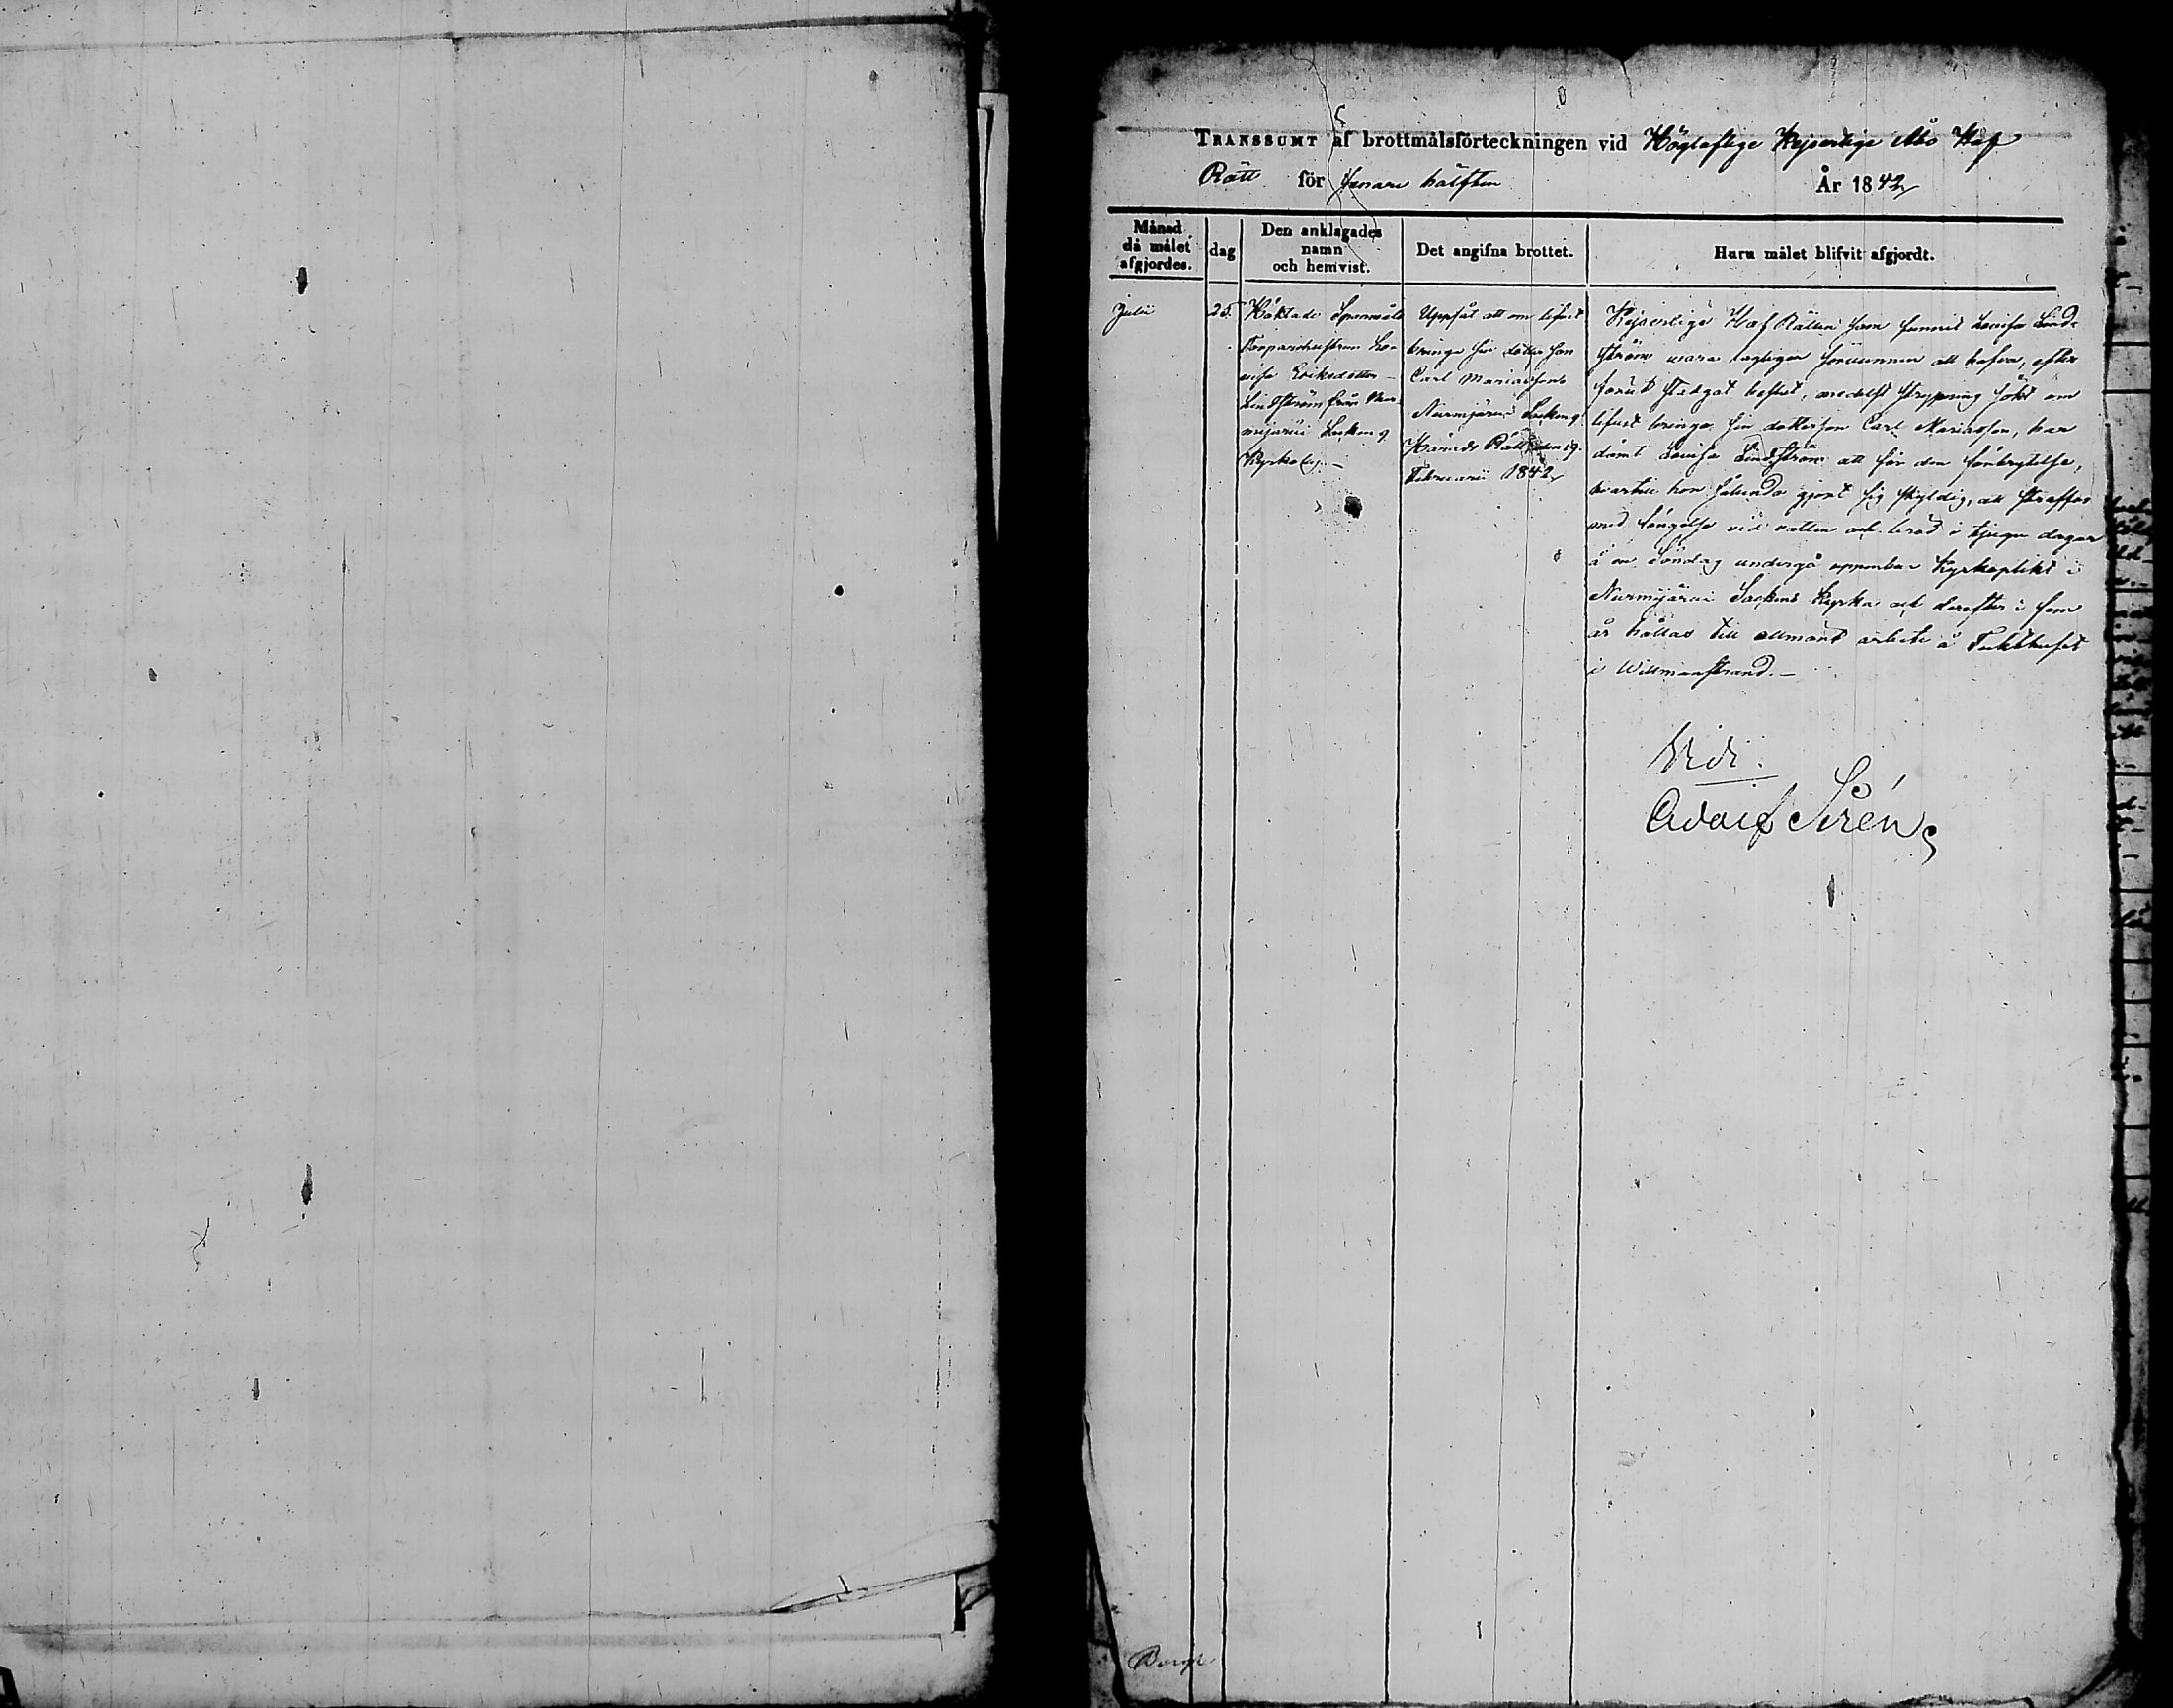 TRANSSUMT af brottmålsförteckningen vid Högloflige Kejserlige Åbo Hof
Rätt för senare hälften År 1842
Månad då målet afgjordes.
dag
Den anklagades namn och hemvist.
Det angifna brottet.
Huru målet blifvit afgjordt.
Julii
25.
Häktade
Torparehustrun Lo-
visa Eriksdotter
Lindström från Nur-
mijärvi Socken o
Kyrkoby.
Uppsåt att om lifvet
bringa sin dotter son
Carl Mariasson
Nurmijärvi Sockens
Härads Rätt den 19
Februarii 1842
Kejserlige Hof Rätten som funnit Lovisa Lind-
ström vara lagligen förvunnen att hafva, efter
förut stadgat beslut, medelst strypning sökt om
lifvet bringa sin dotterson Carl Mariasson, har
dömt Lovisa Lindström att för den förbrytelse,
hvartill hon sålunda gjort sig skyldig, att straffas
med fängelse vid vatten och bröd i tjugu dagar
å en Söndag undergå uppenbar Kyrkoplikt i
Nurmijärvi Sockens Kyrka och derefter i fem
år hållas till allmänt arbete å Tukthuset
i Willmanstrand.
Vidi.
Adolf Sirén
Borgå